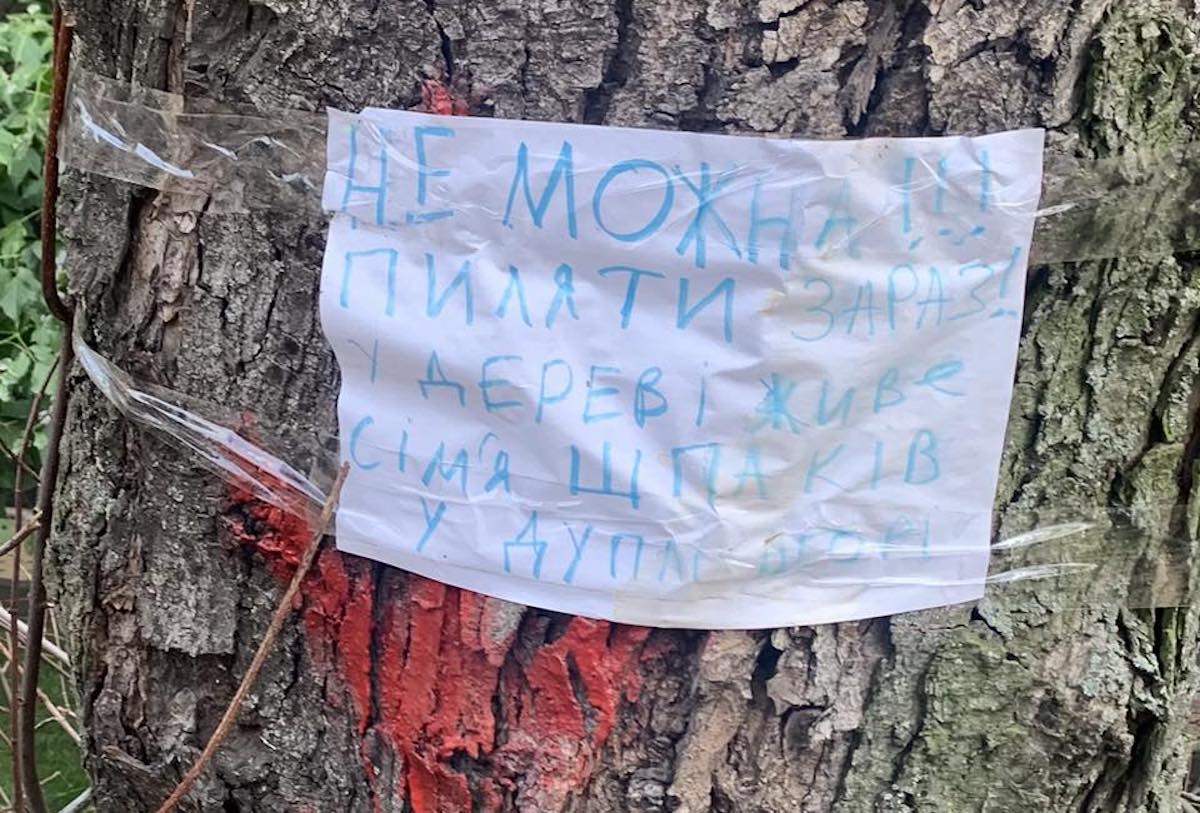 НЕ МОЖНА!!!
ПИЛЯТИ ЗАРАЗ!
У ДЕРЕВІ ЖИВЕ
СІМ'Я ШПАКІВ
У ДУПЛІ ВГОРІ